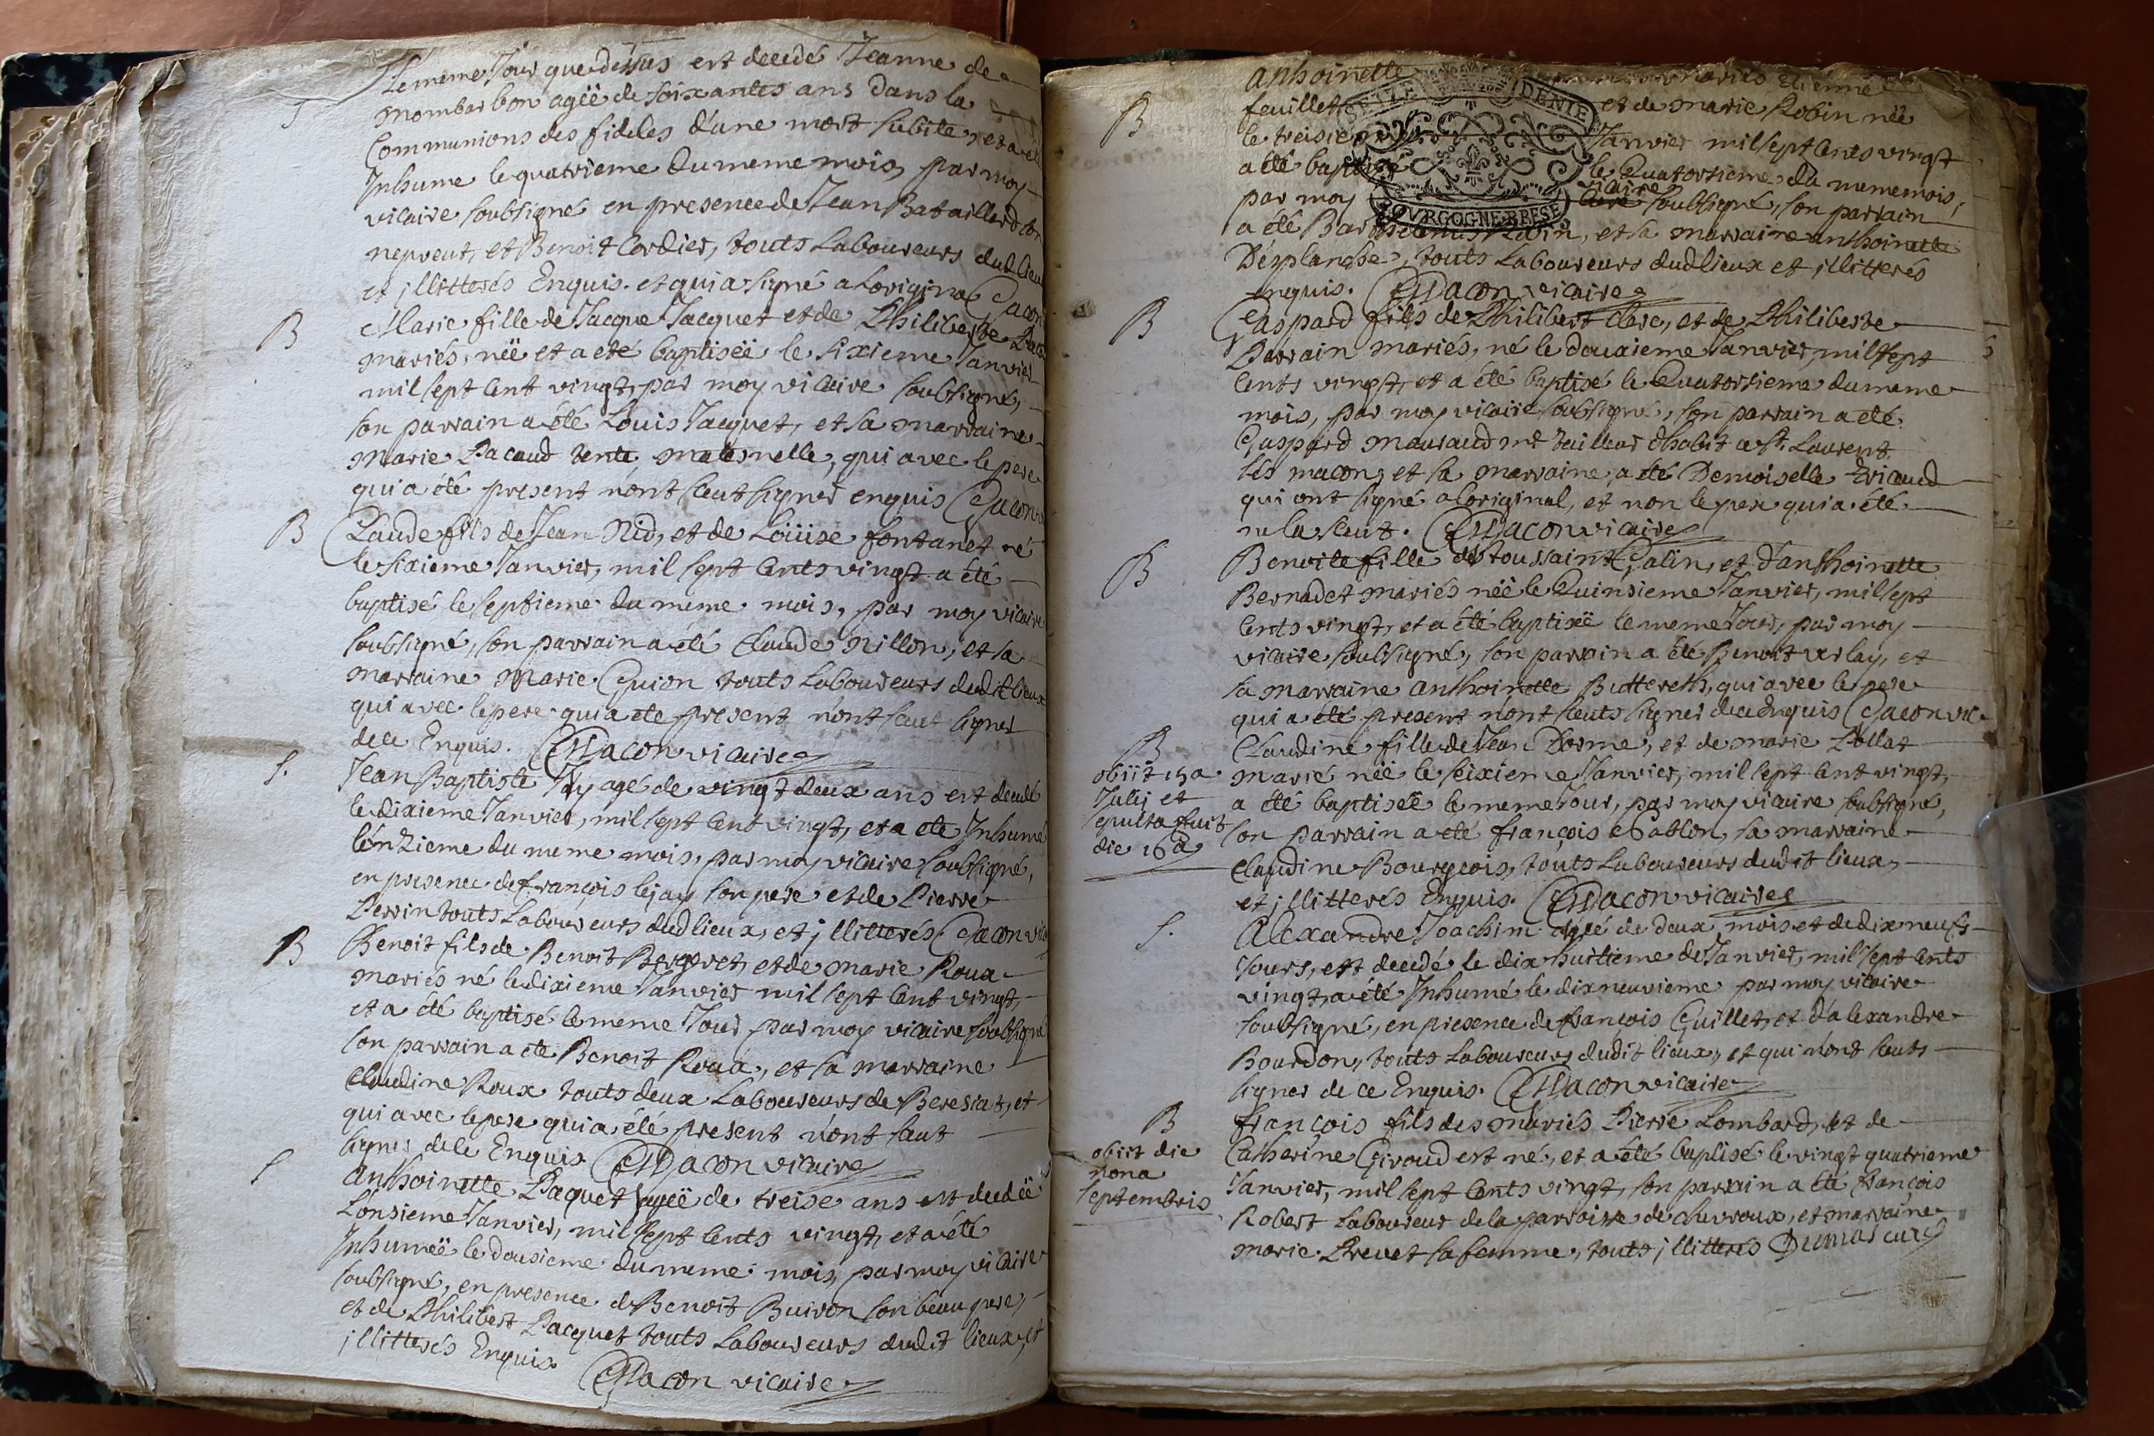 Le meme Jour que dessus est decedé Jeanne de
mombarbon ageë de soixantes ans dans la
S
Communions des fideles d'une mort subite, et a été
Inhume le quatrieme du meme mois, par moy
vicaire soubsigné en presence de Jean Bataillard son
nepveut, et Benoit Cordier, touts Laboureurs dud lieu
et illitterés Enquis. et qui a signé a Loriginal Dacon
B
Marie fille de Jacque Jacquet et de Philiberte
mariés, neë et a eté baptiseë le sixieme Janvier
mil sept cent vingt, par moy vicaire soubsigné,
son parrain a été Louis Jacquet, et sa marraine
Marie Pacaud tente maternelle, qui avec le pere
qui a été present n'ont sceut signer enquis Dacon
B
Claude fils de Jean Nid, et de Loüise fontanet né
le sixieme Janvier, mil sept cents vingt a été
baptisé le septieme du meme mois, par moy vicaire
soubsigné, son parrain a été Claude Nillon, et sa
marraine Marie Guion touts Laboureurs dudit lieux
qui avec le pere qui a été present n'ont sceut signer
de ce Enquis. Dacon vicaire
S.
Jean Baptiste Jay agé de vingt deux ans est decedé
le dixieme Janvier, mil sept cent vingt, et a eté Inhumé
l'onzieme du meme mois, par moy vicaire soubsigné,
en presence de françois lejay son pere et de Pierre
Perrin touts Laboureurs dud lieux, et illitterés Dacon vic
B
Benoit fils de Benoit Bergeret, et de marie Roux
mariés né le dixieme Janvier mil sept cent vingt
et a été baptisé le meme Jour par moy vicaire soubsigné
son parrain a été Benoit Roux, et sa marraine
Claudine Roux touts deux Laboureurs de Beresiat, et
qui avec le pere qui a été present n'ont sceut
signer de ce Enquis Dacon vicaire
S
Anthoinette Paquet ageë de treise ans est decedeë
L'onsieme Janvier, mil sept cents vingt, et a été
Inhumeë le dousieme du meme mois, par moy vicaire
soubsigné, en presence de Benoit Buiron son beau pere,
et de Philibert Pacquet touts Laboureurs dudit lieux, et
illitterés Enquis
Dacon vicaire
anthoinette mariés, etienne
B
feuillet et de marie Robin neë
le treisie Janvier mil sept cents vingt
a été baptisé le Quatorsieme du meme mois,
vicaire
par moy soubsigné, son parrain
DENIE
BOVRGOGNE·BRESE
a été Barthelemis Robin, et sa marraine anthoinette
Desplanche, touts Laboureurs dud lieux et illitterés
enquis. Dacon vicaire
B
Gaspard fils de Philibert Clerc, et de Philiberte
Parrain mariés, né le douxieme Janvier, mil sept
cents vingt, et a été baptisé le Quatorsieme du meme
mois, par moy vicaire soubsigné, son parrain a été
Gaspard mauraud mtre tailleur d'habit a St Laurent
lés macon, et sa marraine, a été Demoiselle Ericaud
qui ont signé a Loriginal, et non le pere qui a été
n la sceut. Dacon vicaire
B
Benoite fille de toussaint Galin, et d'anthoinette
Bernadet mariés neë le Quinsieme Janvier, mil sept
cents vingt, et a été baptiseë le meme Jour, par moy
vicaire soubsigné, son parrain a été Benoit verlay, et
sa marraine anthoinette Buttereth, qui avec le pere
qui a été present n'ont sceuts signer de ce Enquis Dacon vic
B
obiit 15a
Julij et
sepulta fuit
die 16a
Claudine fille de Jean Dorme, et de marie Pollat
marié neë le seixieme Janvier, mil sept cent vingt,
a été baptiseë le meme Jour, par moy vicaire soubsigné,
son parrain a été françois Sablon, sa marraine
Claudine Bourgeois, touts Laboureurs dudit lieux,
et illitterés Enquis. Dacon vicaire
S.
Alexandre Joachim ageé de deux mois et de dix neufs
Jours, est decedé le dix huitieme de Janvier, mil sept cents
vingt, a été Inhumé le dix neuvieme par moy vicaire
soubsigné, en presence de françois Guillet, et d'alexandre
Bourdon, touts Laboureurs dudit lieux, et qui n'ont sceuts
signer de ce Enquis. Dacon vicaire
B
obiit die
nona
septembris
françois fils des mariés Pierre Lombard, et de
Catherine Giroud est né, et a été baptisé le vingt quatrieme
Janvier, mil sept cents vingt, son parrain a été françois
Robert Laboureur de la parroisse de chevroux, et marraine
marie Prevet sa femme, touts illitterés Dumas curé